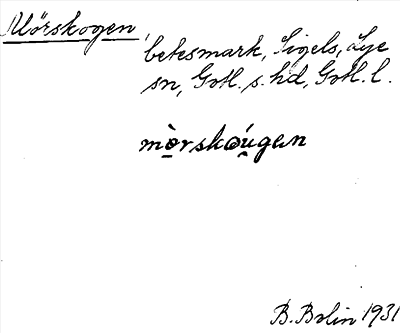 Mörskogen,
betesmark, Sigels, Lye
sn, Gotl. s. hd, Gotl. l.
mò̱rskəú̯gən
B. Bolin 1931